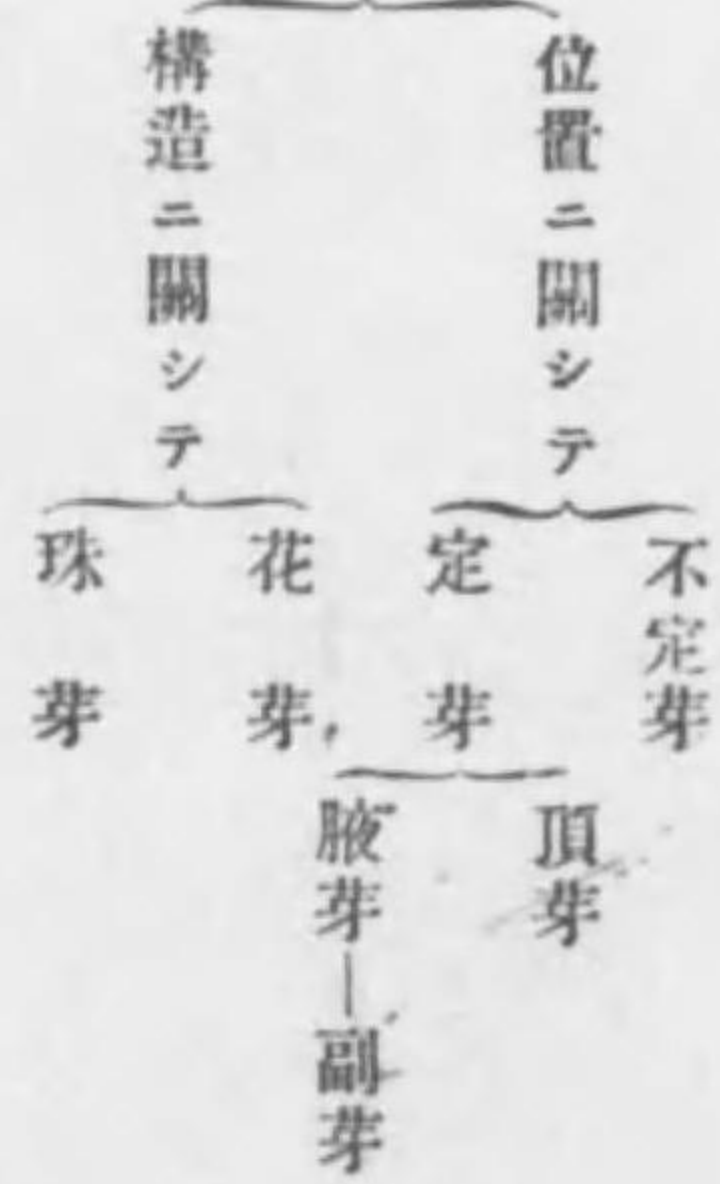 位置ニ關シテ
不定芽
定芽
頂芽
腋芽―副芽
構造ニ關シテ
花芽
珠芽